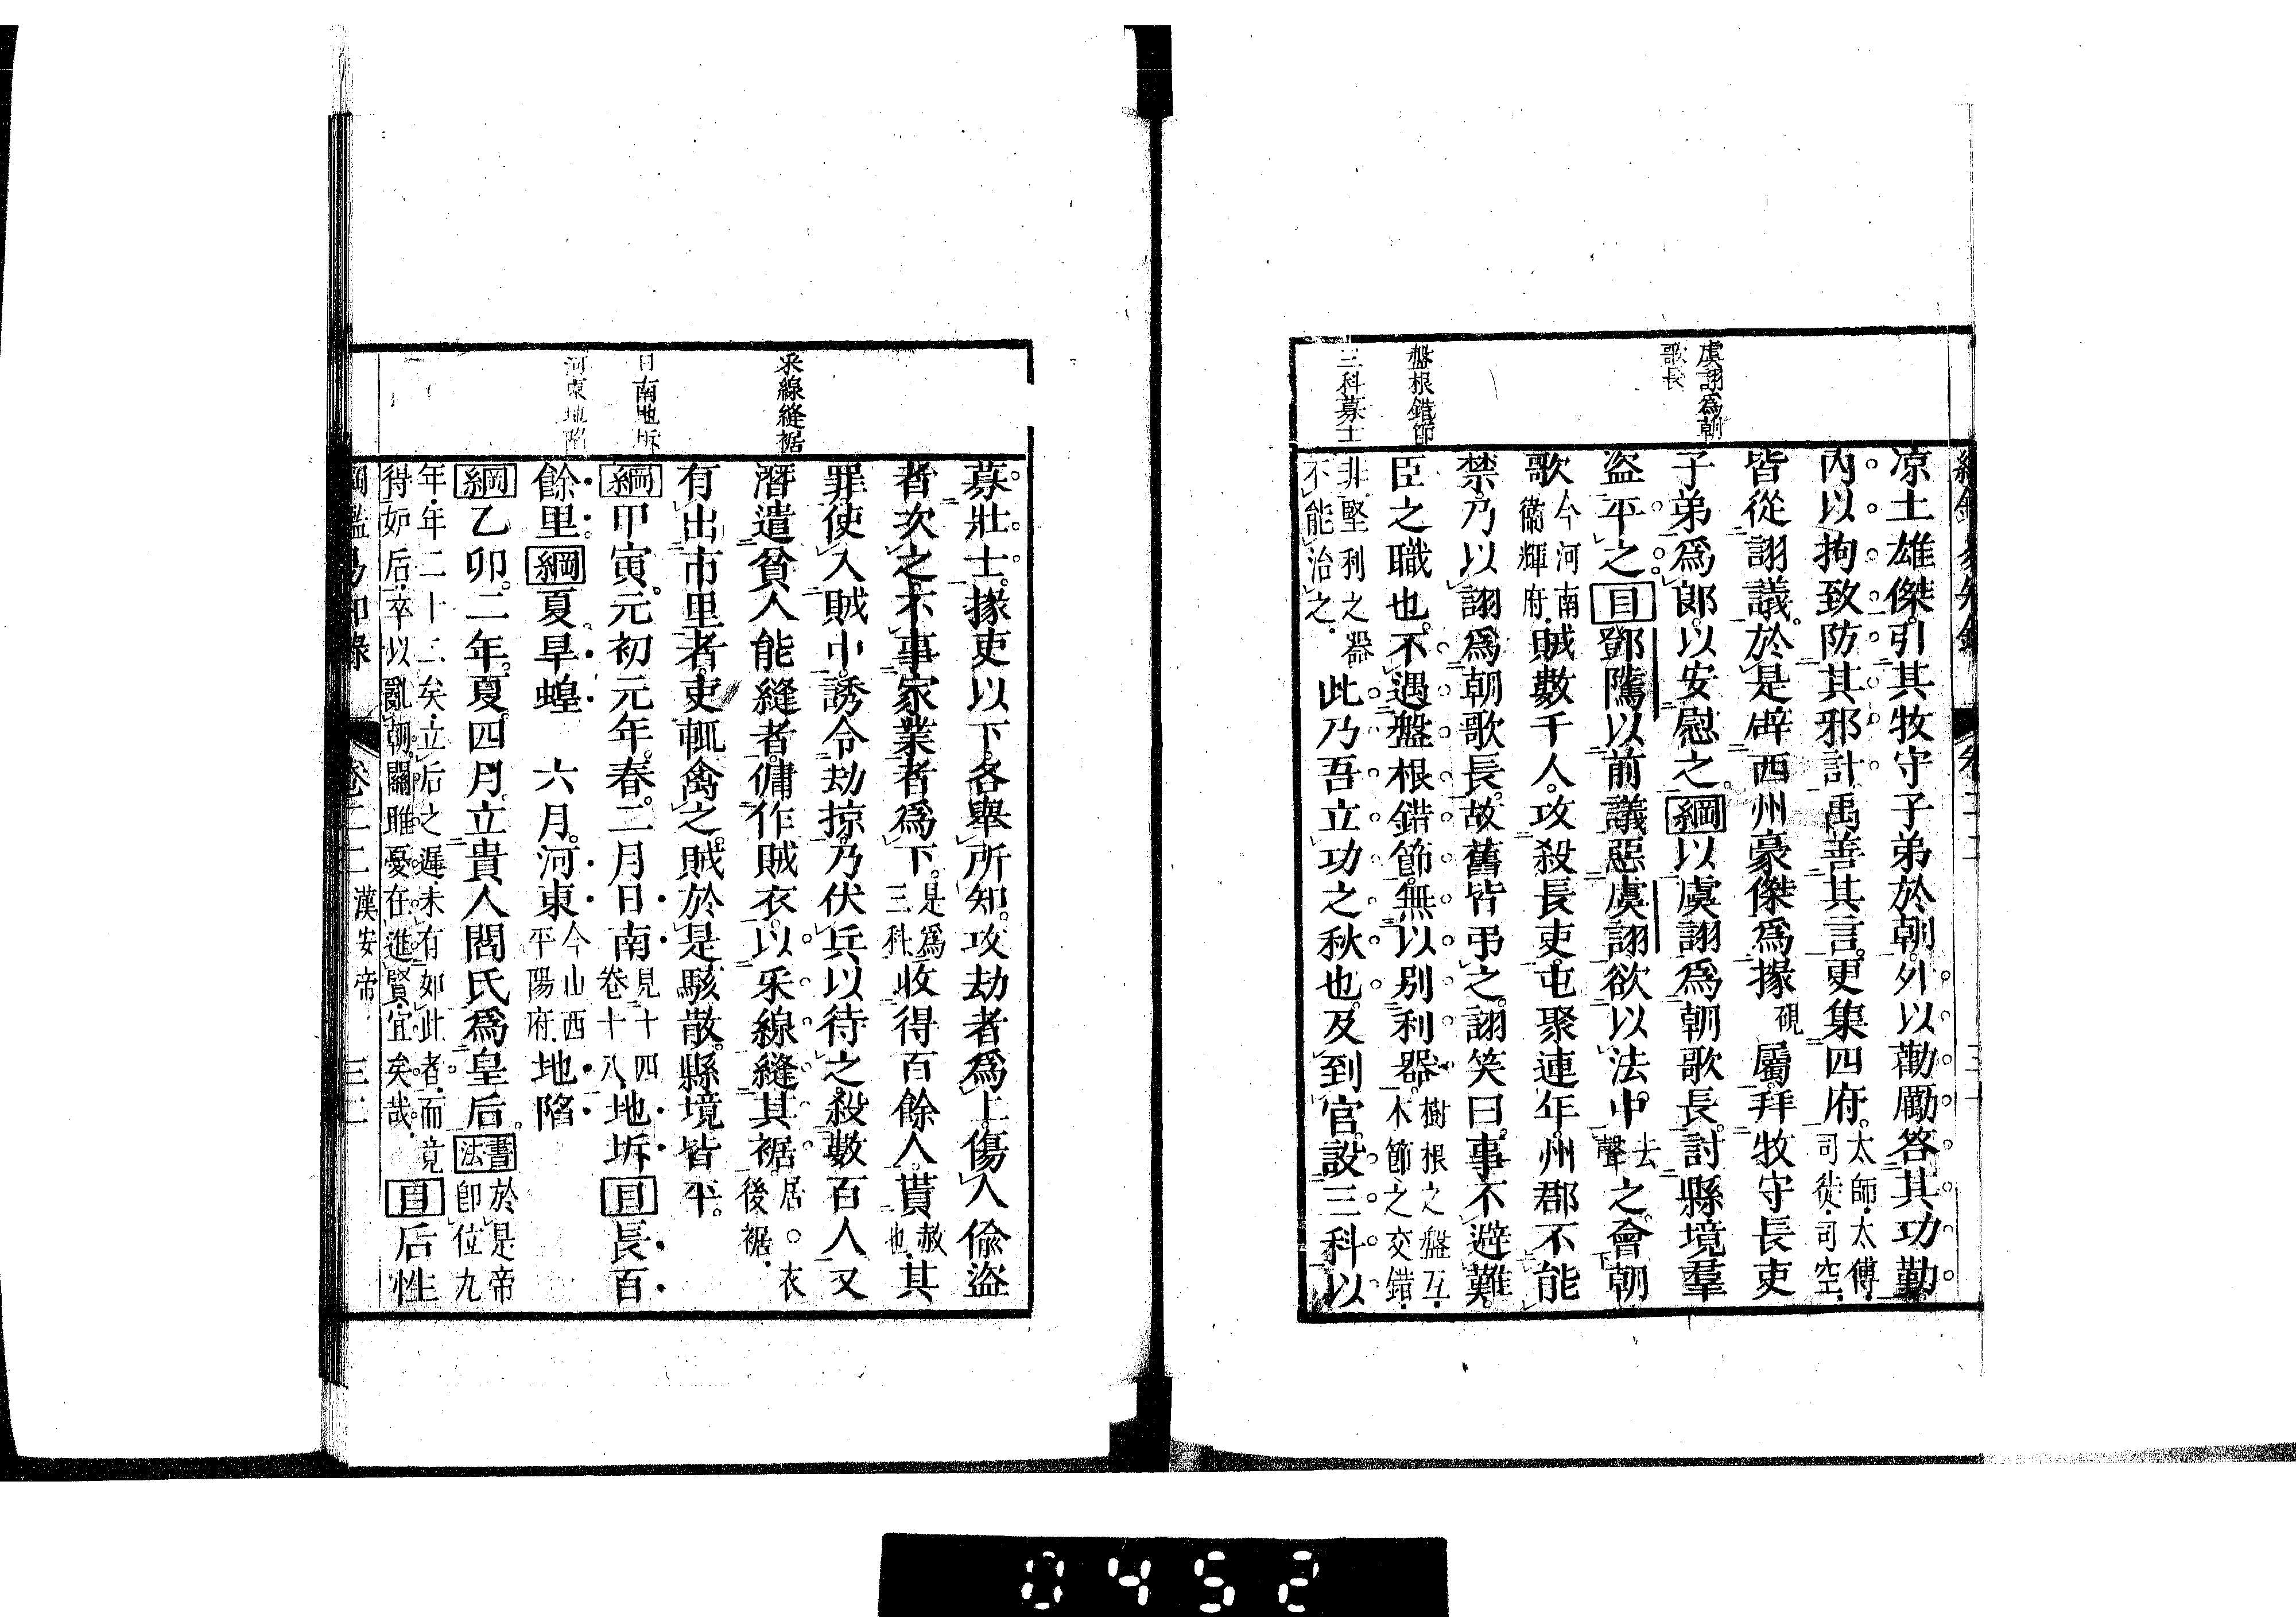 虞詡爲朝
歌長
盤根錯節
三科募士
涼土雄傑。引其牧守子弟於朝。外以勸厲答其功勤。
內以拘致防其邪計。禹善其言。更集四府。太師。太傅。司徒。司空。
皆從詡議。於是辟西州豪傑爲掾硯屬。拜牧守長吏
子弟爲郞。以安慰之。綱以虞詡爲朝歌長。討縣境羣
盜平之。目鄧騭以前議惡虞詡。欲以法中去聲之。會朝
歌今河南衞輝府。賊數千人。攻殺長吏。屯聚連年。州郡不能
禁。乃以詡爲朝歌長。故舊皆弔之。詡笑曰。事不避難。
臣之職也。不遇盤根錯節。無以別利器。樹根之盤互。木節之交錯。
非堅利之器不能治之。此乃吾立功之秋也。及到官。設三科以
采線縫裾
日南地坼
河東地陷
募壯士。掾吏以下。各舉所知。攻劫者爲上。傷人偸盜
者次之。不事家業者爲下。是爲三科。收得百餘人。貰赦也。其
罪。使入賊中。誘令劫掠。乃伏兵以待之。殺數百人。又
潛遣貧人能縫者。傭作賊衣。以采線縫其裾。居。○衣後裾。
有出市里者。吏輒禽之。賊於是駭散。縣境皆平。
綱甲寅。元初元年。春。二月。日南見十四卷十八。地坼。目長百
餘里。綱夏。旱蝗　六月。河東今山西平陽府。地陷
綱乙卯。二年。夏。四月。立貴人閻氏爲皇后。書法於是帝卽位九
年。年二十二矣。立后之遲。未有如此者。而竟得妒后。卒以亂朝。關雎憂在進賢。宜矣哉。目后性
綱鑑易知錄　卷二二　漢安帝　三二